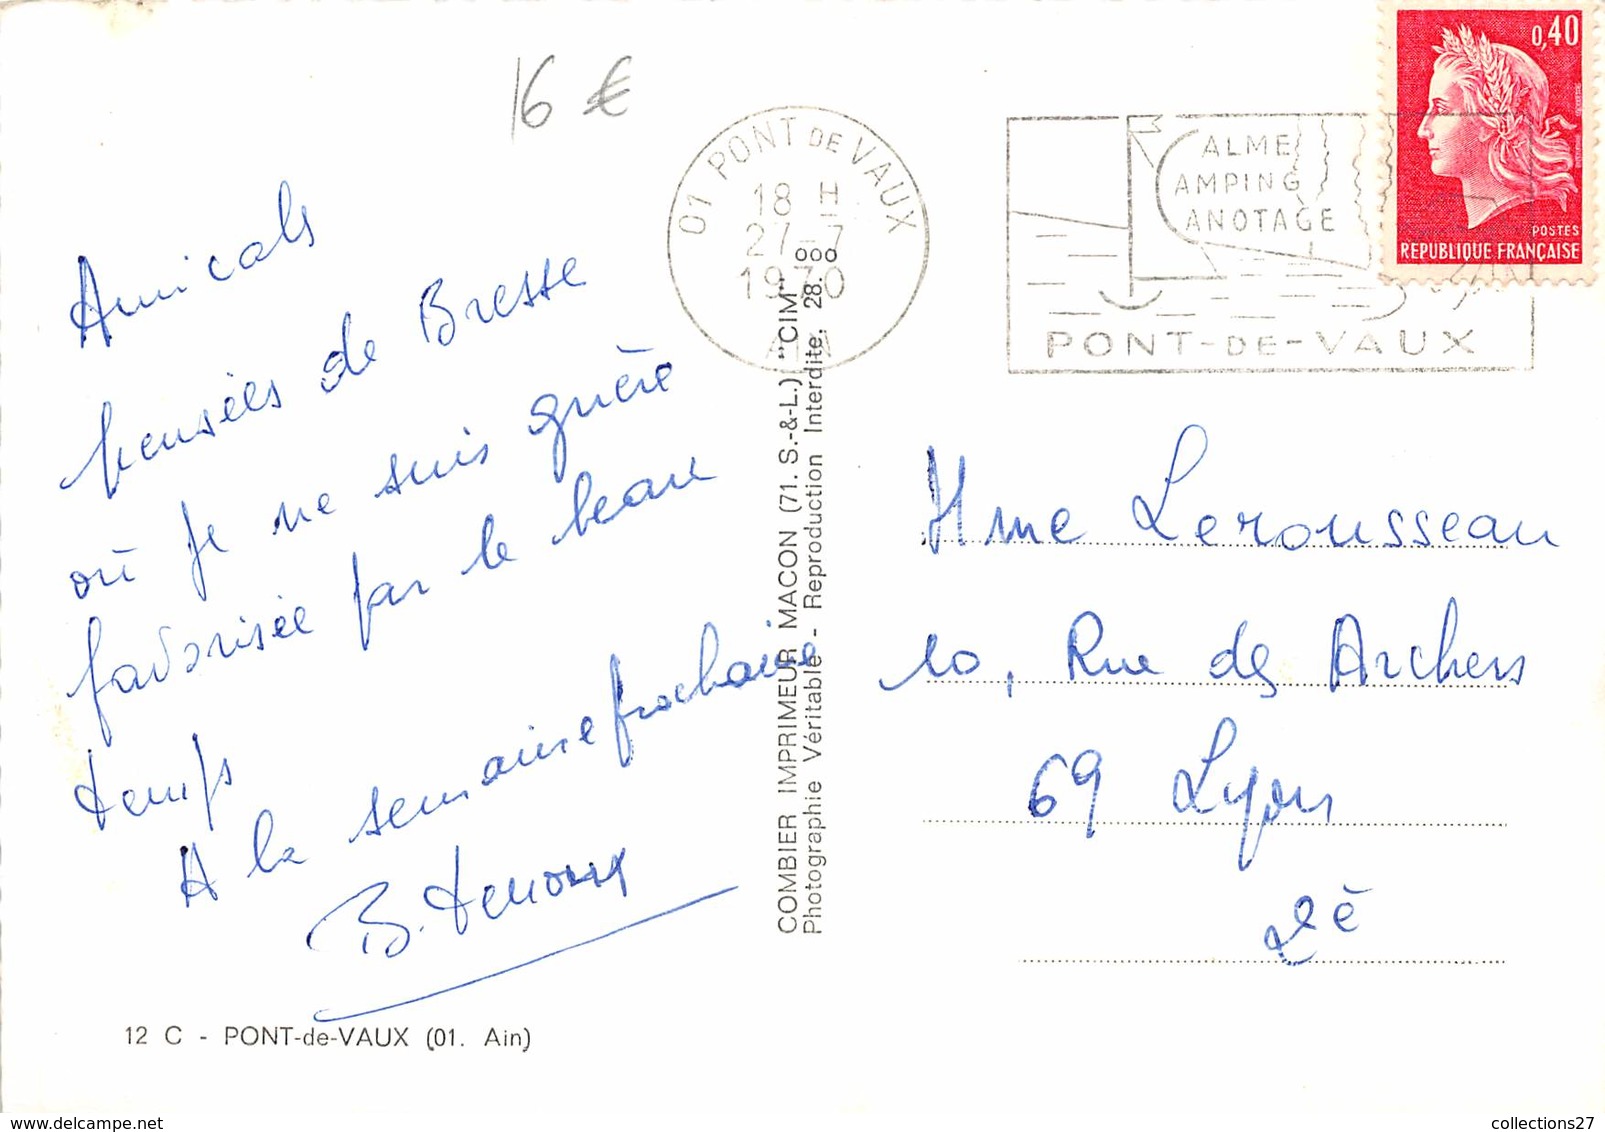 16 €
0,40
POSTES
REPUBLIQUE FRANÇAISE
01 PONT DE VAUX
18 H
27-7
1970
AIN
ALME
AMPING
ANOTAGE
PONT-DE-VAUX
Amicals
pensées de Bresse
où je ne suis guère
favorisée par le beau
temps
A la semaine prochaine
B.
COMBIER IMPRIMEUR MACON (71. S.-&-L.) "CIM"
Photographie Véritable - Reproduction Interdite. 28.000
Mme Lerousseau
10, Rue des Archers
69 Lyon
2è
12 C - PONT-de-VAUX (01. Ain)
collections27